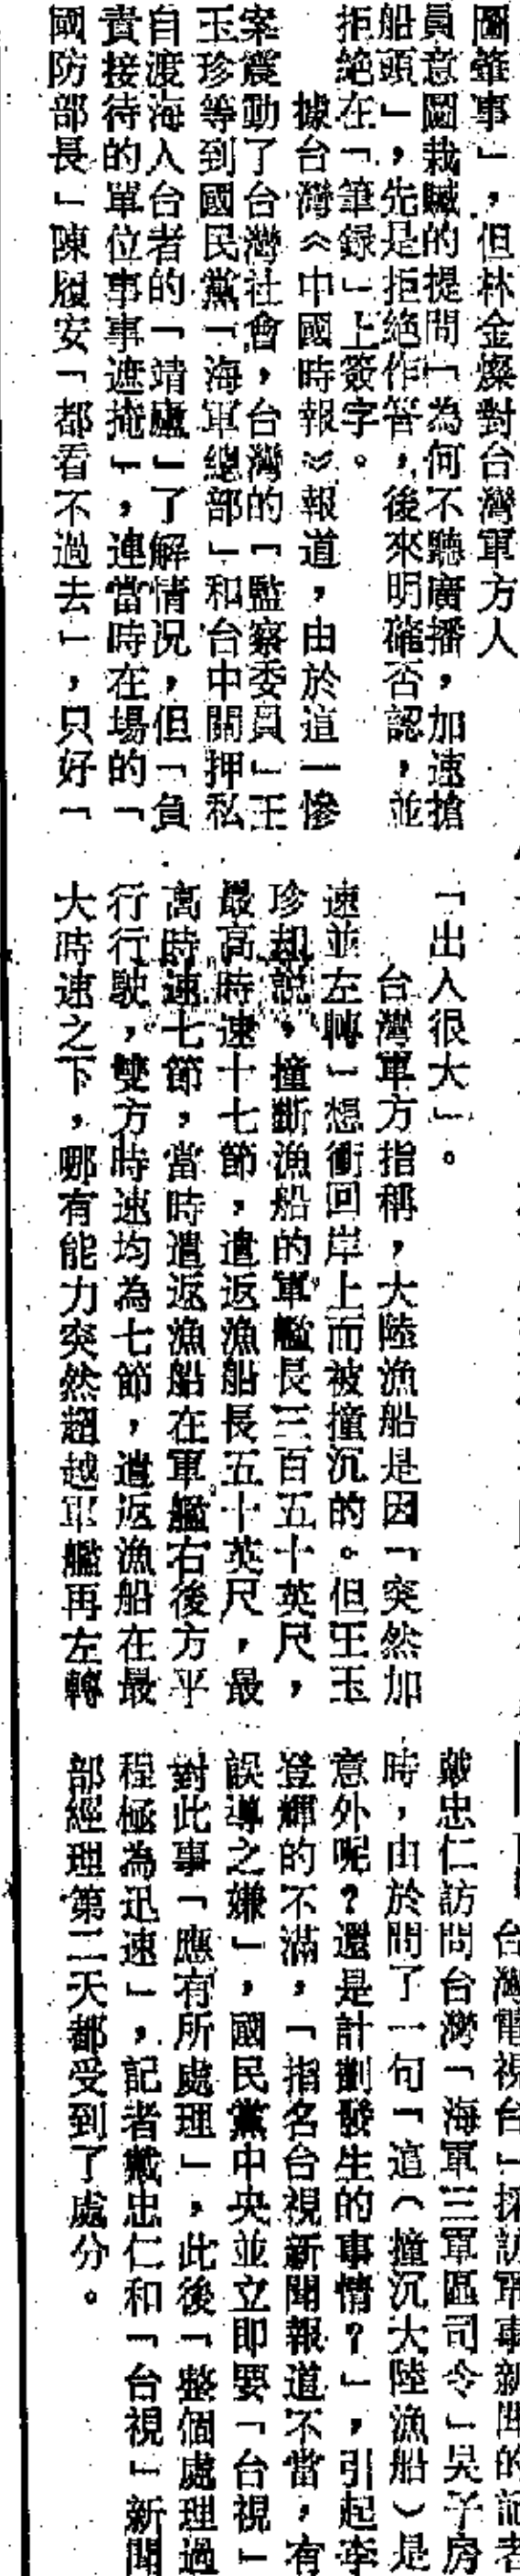 圖肇事」，但林金燦對台灣軍方人
員意圖栽贓的提問「為何不聽廣播，加速搶
船頭」，先是拒絕作答，後來明確否認，並
拒絕在「筆錄」上簽字。
據台灣《中國時報》報道，由於這一慘
案震動了台灣社會，台灣的「監察委員」王
玉珍等到國民黨「海軍總部」和台中關押私
自渡海入台者的「靖廬」了解情況，但「負
責接待的單位事事遮掩」，連當時在場的「
國防部長」陳履安「都看不過去」，只好「
「出入很大」。
台灣軍方指稱，大陸漁船是因「突然加
速並左轉」想衝回岸上而被撞沉的。但王玉
珍却說，撞斷漁船的軍艦長三百五十英尺，
最高時速十七節，遣返漁船長五十英尺，最
高時速七節，當時遣返漁船在軍艦右後方平
行行駛，雙方時速均為七節，遣返漁船在最
大時速之下，哪有能力突然超越軍艦再左轉
台灣電視台」採訪軍事新聞的記者
戴忠仁訪問台灣「海軍三軍區司令」吳子房
時，由於問了一句「這（撞沉大陸漁船）是
意外呢？還是計劃發生的事情？」，引起李
登輝的不滿，「指名台視新聞報道不當，有
誤導之嫌」，國民黨中央並立即要「台視」
對此事「應有所處理」，此後「整個處理過
程極為迅速」，記者戴忠仁和「台視」新聞
部經理第二天都受到了處分。